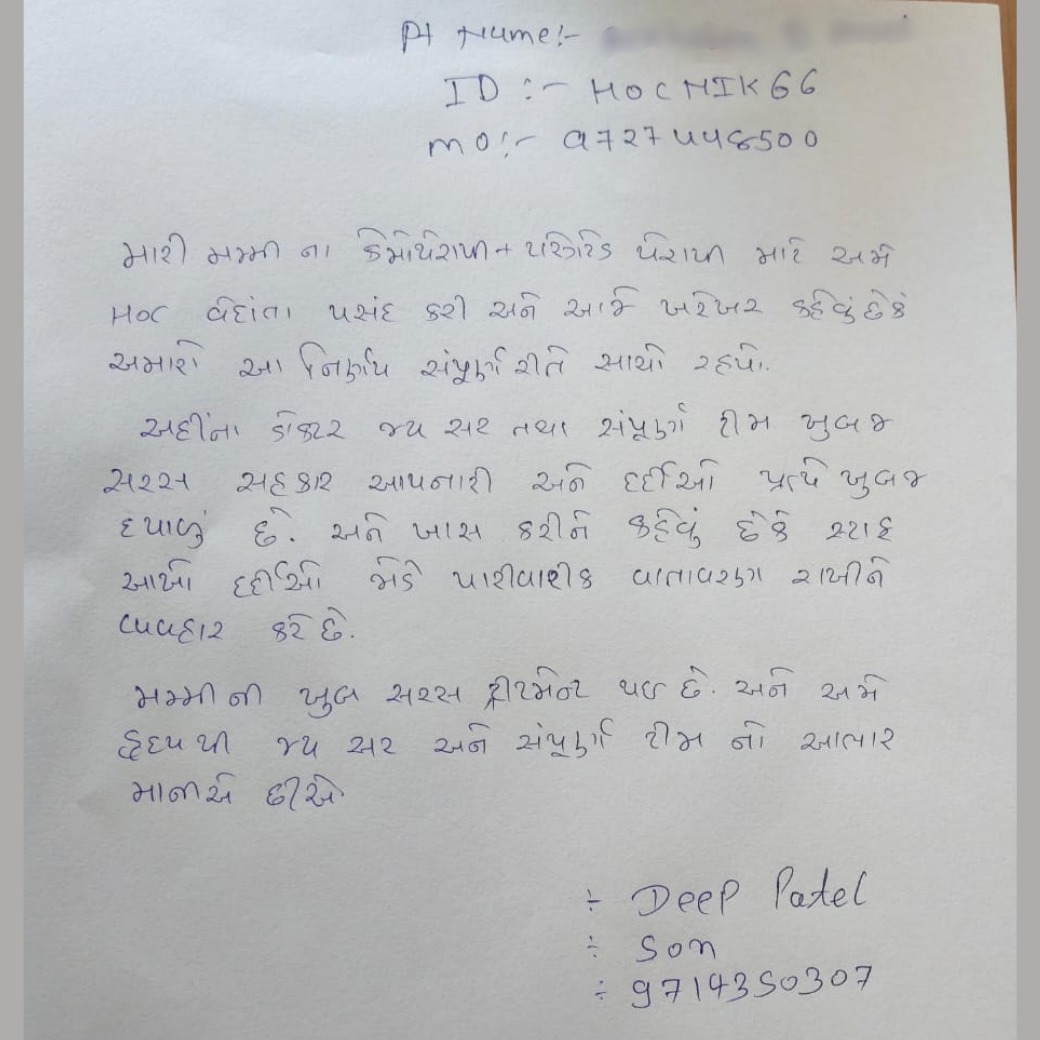 Pt Name:-
ID :- HOCNIK66
mo:- 9727448500
મારી મમ્મી ના કિમોથેરાપી + ટારગેટેડ થેરાપી માટે અમે
HOC વેદાંતા પસંદ કરી અને આજે ખરેખર કહેવું છે કે
અમારો આ નિર્ણય સંપૂર્ણ રીતે સાચો રહ્યો.
અહીંના ડોક્ટર જય સર તથા સંપૂર્ણ ટીમ ખુબ જ
સરસ સહકાર આપનારી અને દર્દીઓ પ્રત્યે ખુબ જ
દયાળું છે. અને ખાસ કરીને કહેવું છે કે સ્ટાફ
આખો દર્દીઓ જોડે પારીવારીક વાતાવરણ રાખીને
વ્યવહાર કરે છે.
મમ્મી ની ખુબ સરસ ટ્રીટમેન્ટ થઇ છે. અને અમે
હૃદય થી જય સર અને સંપૂર્ણ ટીમ નો આભાર
માનીએ છીએ.
÷ Deep Patel
÷ Son
÷ 9714350307